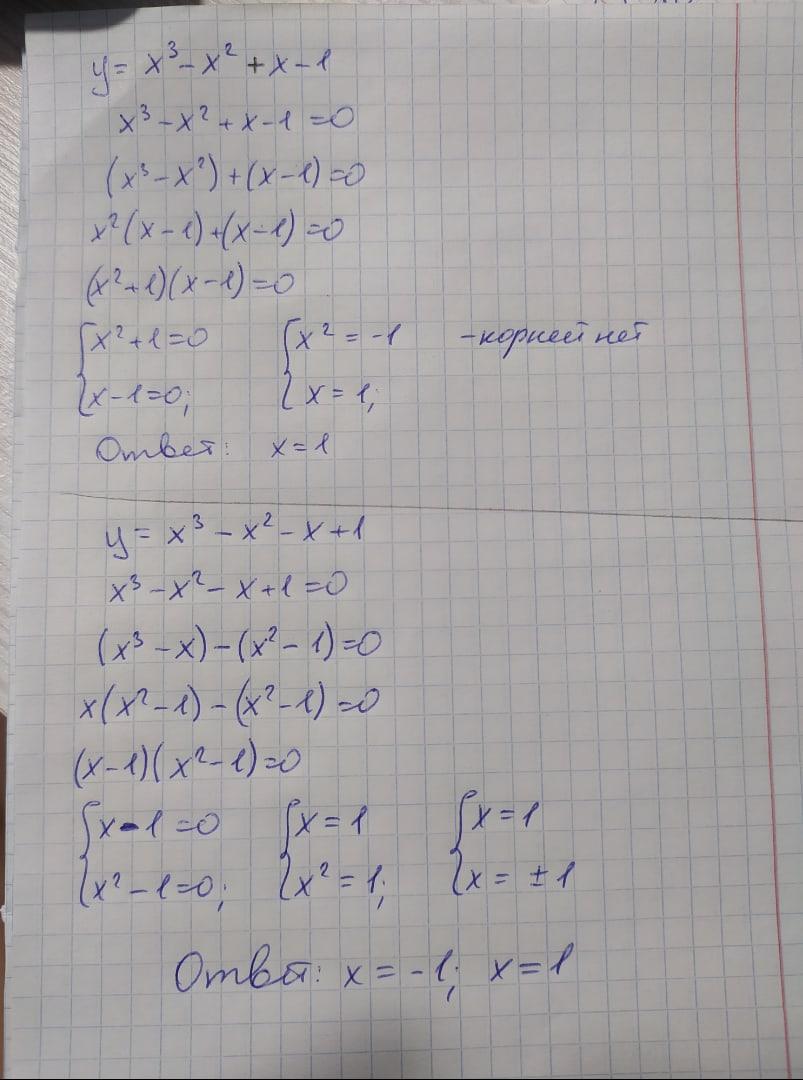 y = x³ - x² + x - 1
x³ - x² + x - 1 = 0
(x³ - x²) + (x - 1) = 0
x²(x - 1) + (x - 1) = 0
(x² + 1)(x - 1) = 0
{ x² + 1 = 0 { x² = -1 - корней нет
{ x - 1 = 0; { x = 1;
Ответ: x = 1
y = x³ - x² - x + 1
x³ - x² - x + 1 = 0
(x³ - x) - (x² - 1) = 0
x(x² - 1) - (x² - 1) = 0
(x - 1)(x² - 1) = 0
{ x - 1 = 0 { x = 1 { x = 1
{ x² - 1 = 0; { x² = 1; { x = ± 1
Ответ: x = -1; x = 1